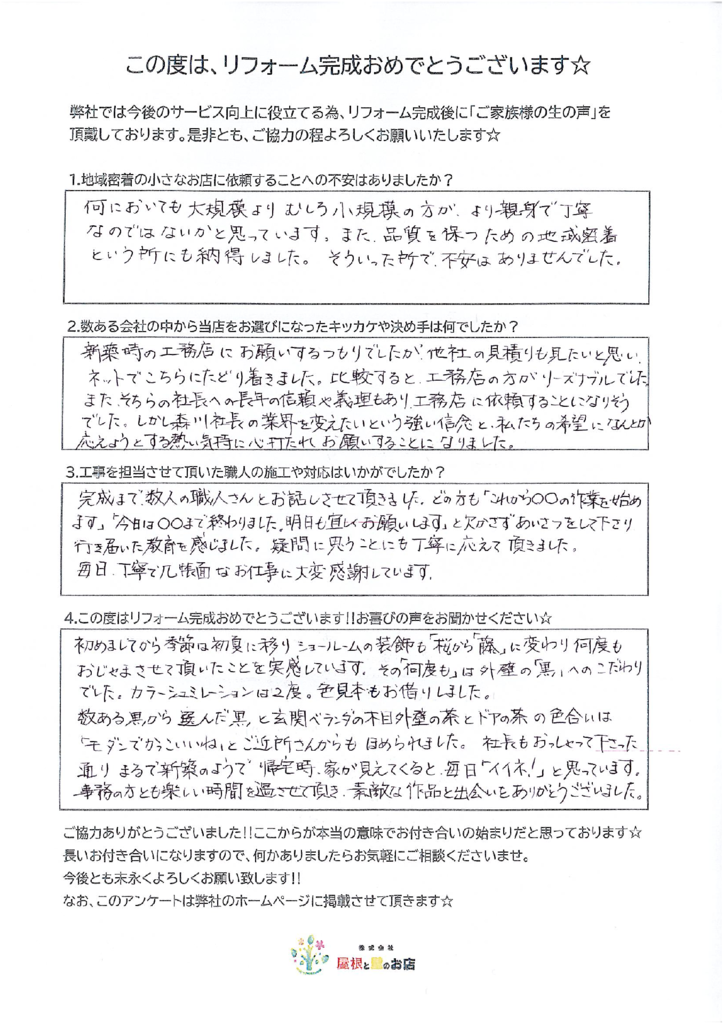 この度は、リフォーム完成おめでとうございます☆
弊社では今後のサービス向上に役立てる為、リフォーム完成後に「ご家族様の生の声」を
頂戴しております。是非とも、ご協力の程よろしくお願いいたします☆
1.地域密着の小さなお店に依頼することへの不安はありましたか？
何においても大規模よりむしろ小規模の方が、より親身で丁寧
なのではないかと思っています。また、品質を保つための地域密着
という所にも納得しました。そういった所で、不安はありませんでした。
2.数ある会社の中から当店をお選びになったキッカケや決め手は何でしたか？
新築時の工務店にお願いするつもりでしたが、他社の見積りも見たいと思い、
ネットでこちらにたどり着きました。比較すると、工務店の方がリーズナブルでした。
また、そちらの社長への長年の信頼や義理もあり、工務店に依頼することになりそう
でした。しかし森川社長の業界を変えたいという強い信念と、私たちの希望になんとか
応えようとする熱い気持に心打たれ、お願いすることになりました。
3.工事を担当させて頂いた職人の施工や対応はいかがでしたか？
完成まで、数人の職人さんとお話しさせて頂きました。どの方も「これから〇〇の作業を始め
ます」「今日は〇〇まで終わりました。明日も宜しくお願いします」と欠かさずあいさつをして下さり
行き届いた教育を感じました。疑問に思うことにも丁寧に応えて頂きました。
毎日、丁寧で几帳面なお仕事に大変感謝しています。
4.この度はリフォーム完成おめでとうございます!!お喜びの声をお聞かせください☆
初めましてから季節は初夏に移りショールームの装飾も「桜から「藤」に変わり何度も
おじゃまさせて頂いたことを実感しています。その「何度も」は外壁の「黒」へのこだわり
でした。カラーシュミレーションは2度。色見本もお借りしました。
数ある黒から選んだ黒と玄関ベランダの木目外壁の茶とドアの茶の色合いは
「モダンでかっこいいね」とご近所さんからもほめられました。社長もおっしゃって下さった
通りまるで新築のようで帰宅時、家が見えてくると、毎日「イイネ!」と思っています。
事務の方とも楽しい時間を過させて頂き、素敵な作品と出会いをありがとうございました。
ご協力ありがとうございました!!ここからが本当の意味でお付き合いの始まりだと思っております☆
長いお付き合いになりますので、何かありましたらお気軽にご相談くださいませ。
今後とも末永くよろしくお願い致します!!
なお、このアンケートは弊社のホームページに掲載させて頂きます☆
株式会社
屋根と壁のお店